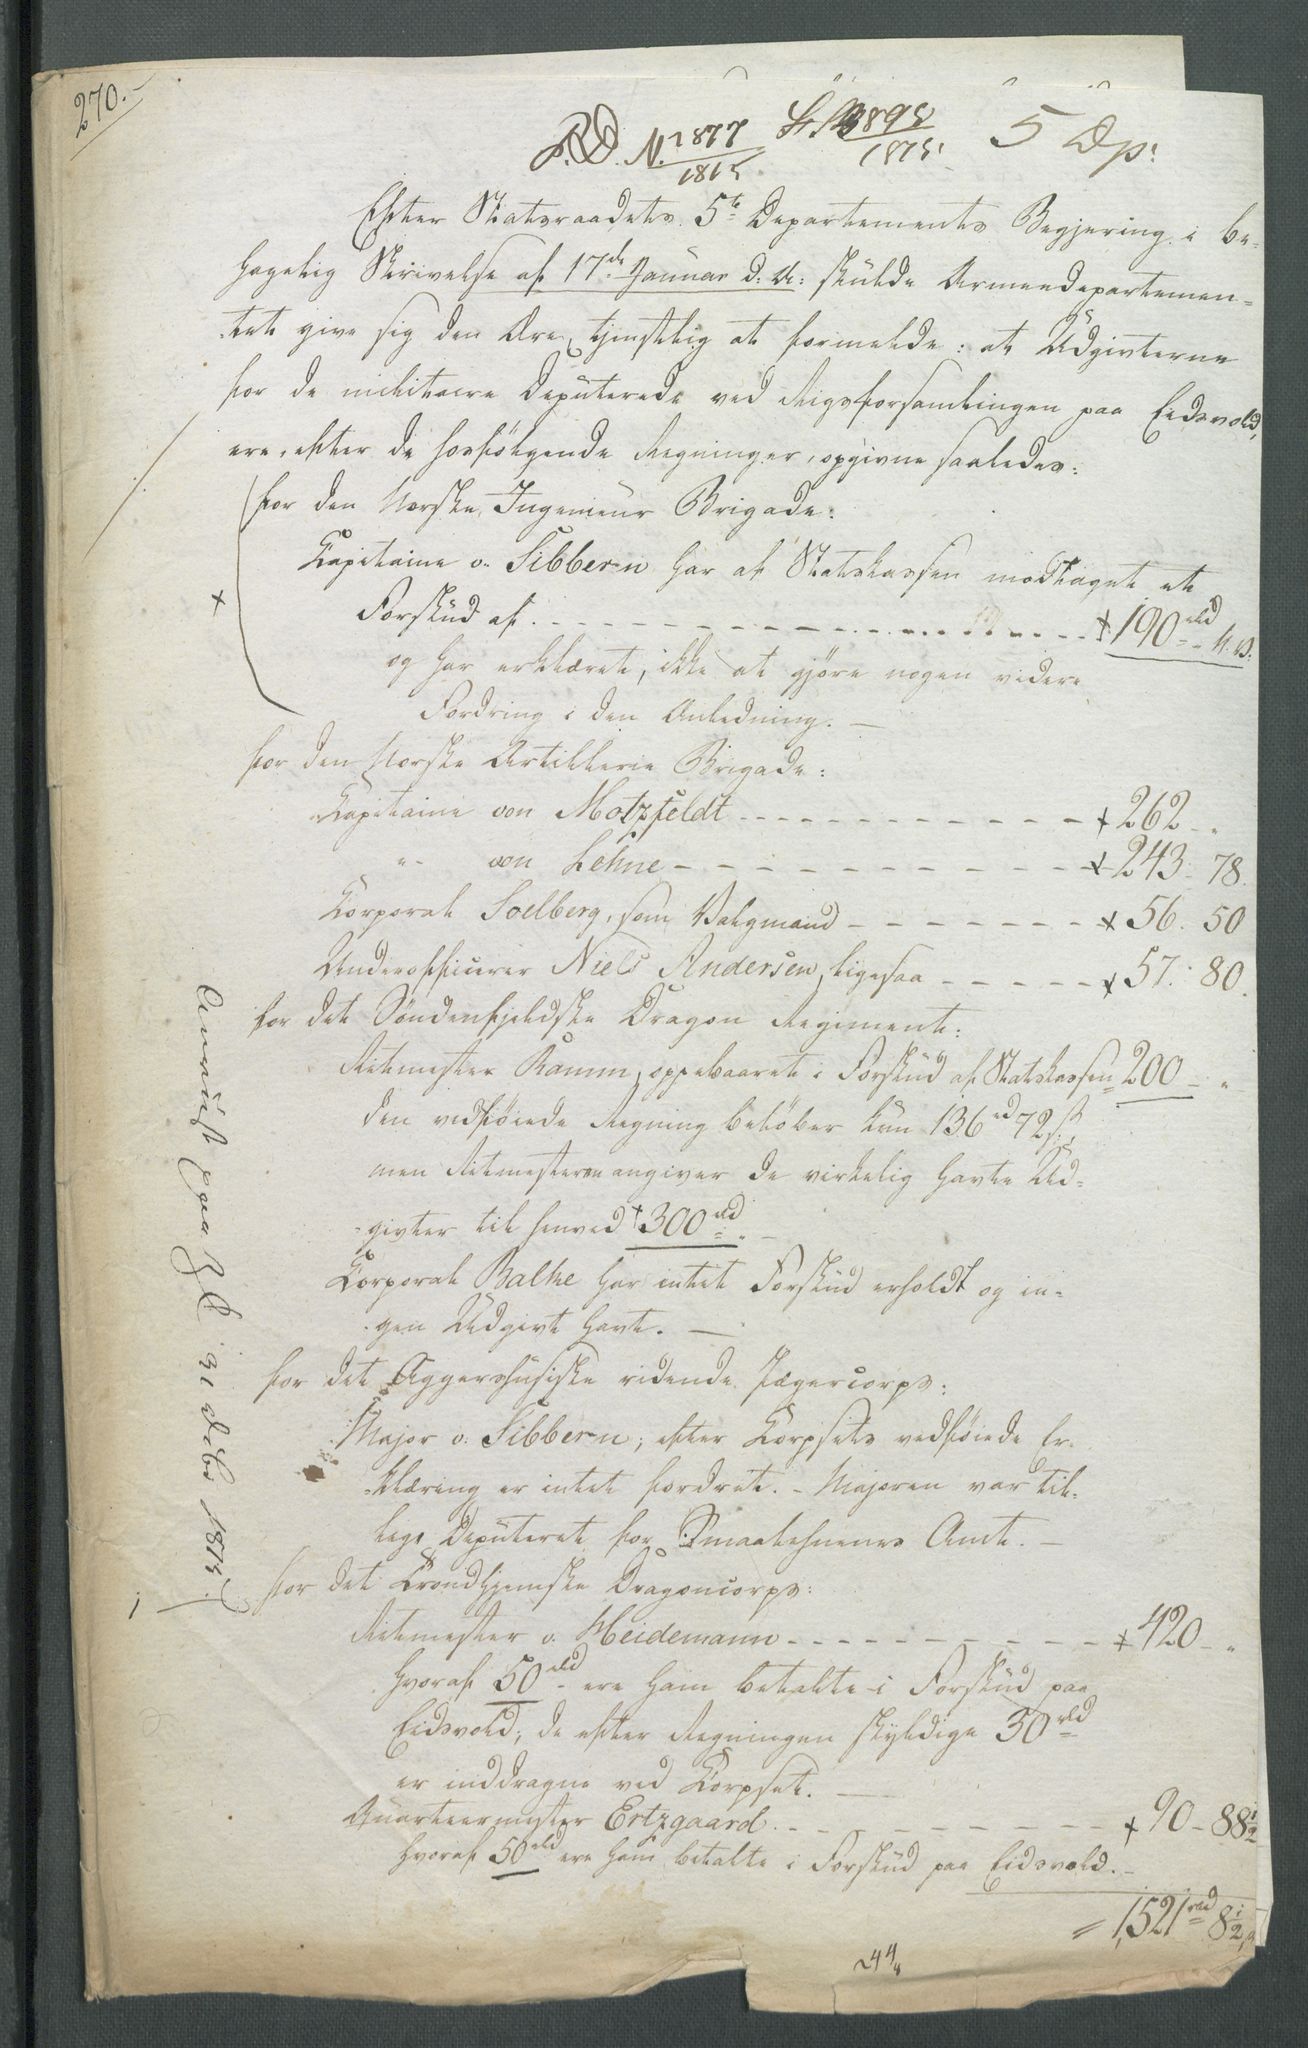 270.
R.D. N. 1877/1815
5 Dp:
Efter Statsraadets 5te Departements Begjering i be-
hagelig Skrivelse af 17de Januar d: A: skulde Armeedepartemen-
tet give sig den Ære, tjenstlig at formelde: at Udgivterne
for de militaire Deputerede ved Rigsforsamlingen paa Eidsvold,
ere, efter de hosfölgende Regninger, opgivne saaledes:
for den Norske Ingenieur Brigade:
Capitaine v. Sibbern har af Statskassen modtaget et
Forskud af - - - 190 rbd N.V.
og har erklæret, ikke at gjöre nogen videre
Fordring i den Anledning. —
for den Norske Artillerie Brigade:
Capitaine von Motzfeldt - - - 262 - "
" von Lehne - - - 243 - 78.
Corporal Soelberg, som Valgmand - - - 56. 50
Underofficerer Niels Andersen, ligesaa - - - 57. 80.
for det Söndenfjeldske Dragon Regiment:
Ritmester Ramm, oppebaaret i Forskud af Statskassen 200 - "
den vedföiede Regning belöber kun 136 rd 72 s,
men Ritmesteren angiver de virkelig havte Ud-
givter til henved 300 rbd
Corporal Balke har intet Forskud erholdt og in-
gen Udgivt havt. —
for det Aggershusiske ridende Jægercorps:
Major v. Sibbern; efter Corpsets vedföiede Er-
klæring er intet fordret. - Majoren var til-
lige Deputeret for Smaalehnenes Amt. —
for det Trondhjemske Dragoncorps:
Ritmester v. Heidemann - - - 420 - "
hvoraf 50 rbd ere ham betalte i Forskud paa
Eidsvold; de efter Regningen skyldige 30 rbd
er inddragne ved Corpset. —
Quarteermester Ertzgaard - - - 90 - 88½
hvoraf 50 rbd ere ham betalte i Forskud paa Eidsvold. -
= 1,521 rbd 8½ s